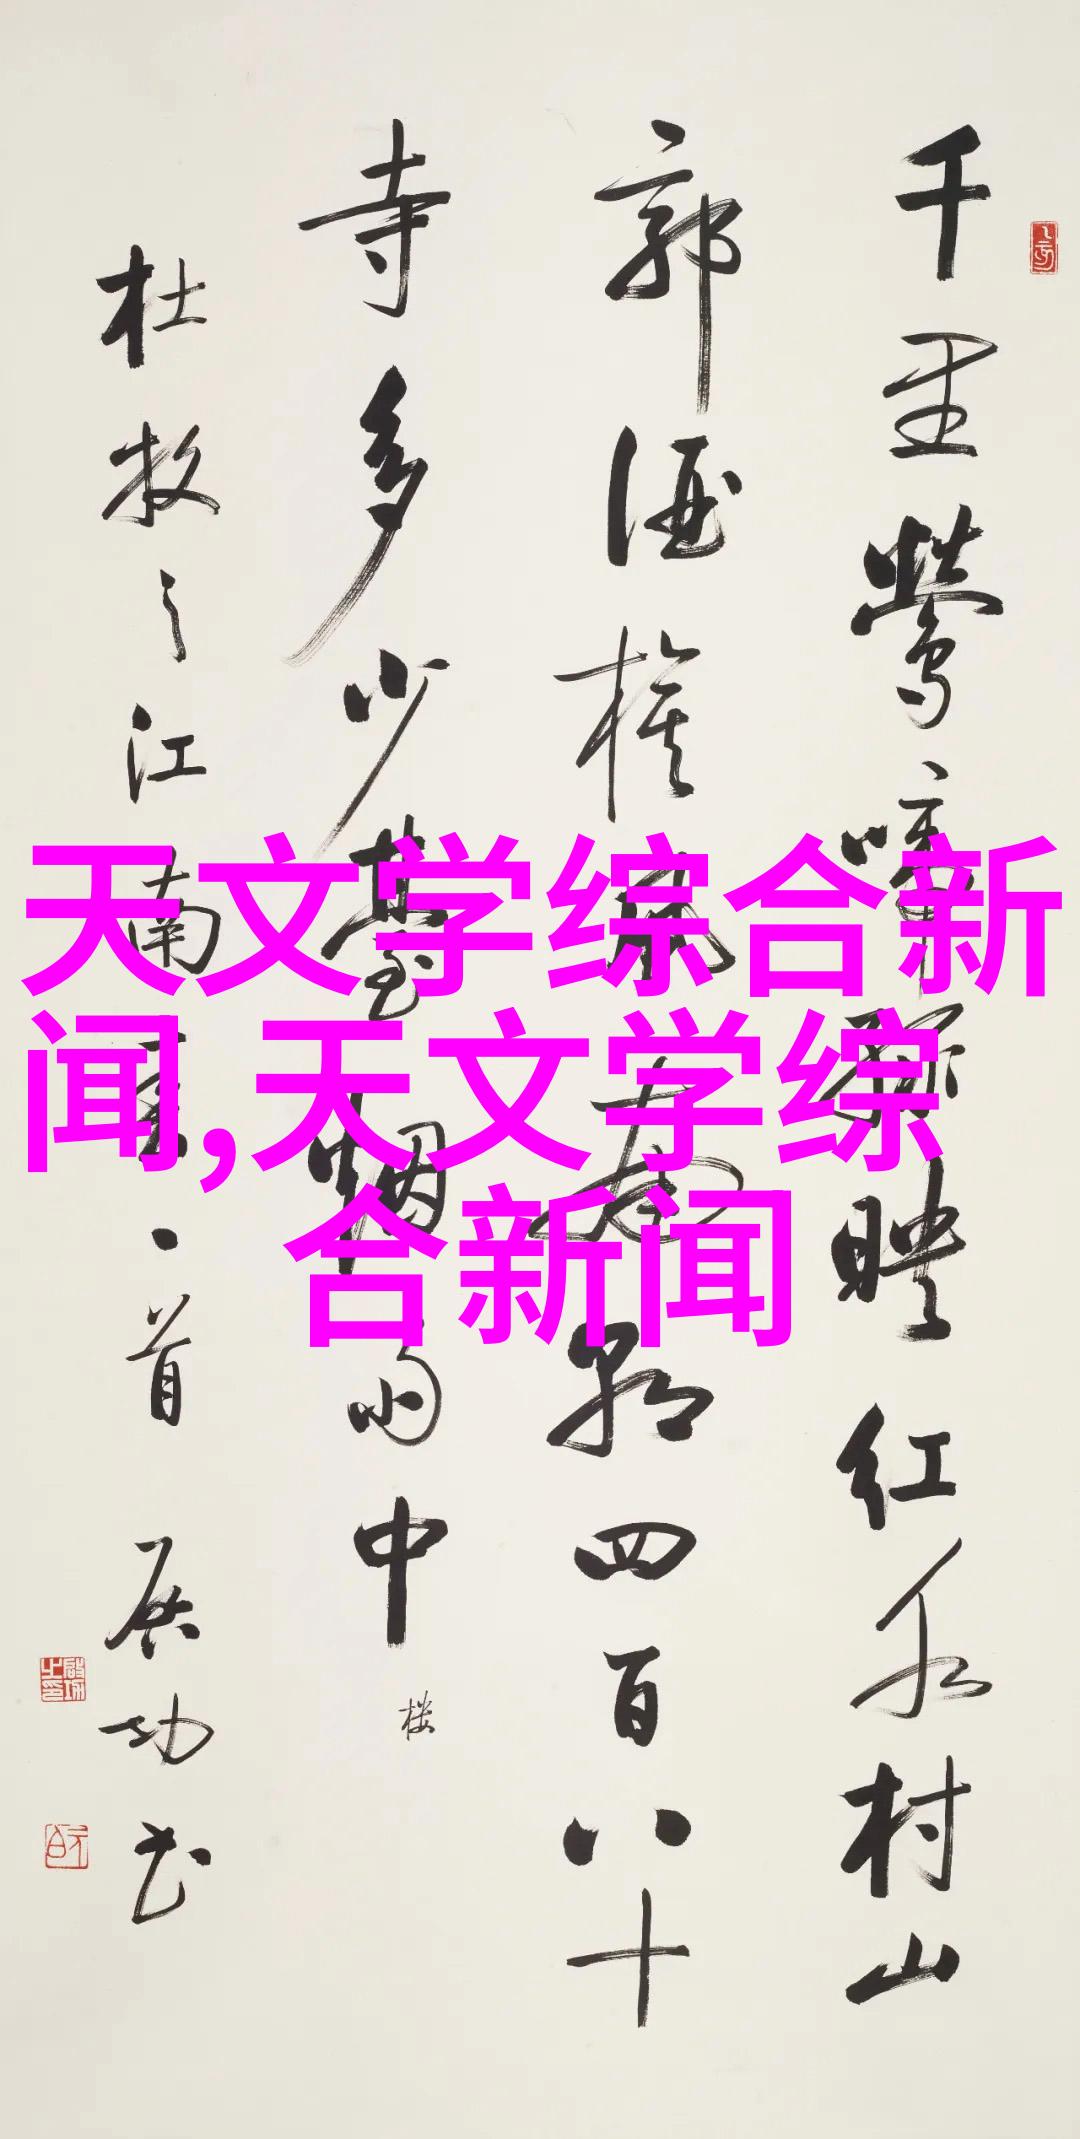 千里鶯啼緑映红水村山
郭酒旗風南朝四百八十
寺多少臺烟雨中
楼
杜牧之江南春一首 启功书
天文学综合新
闻,天文学综
合新闻